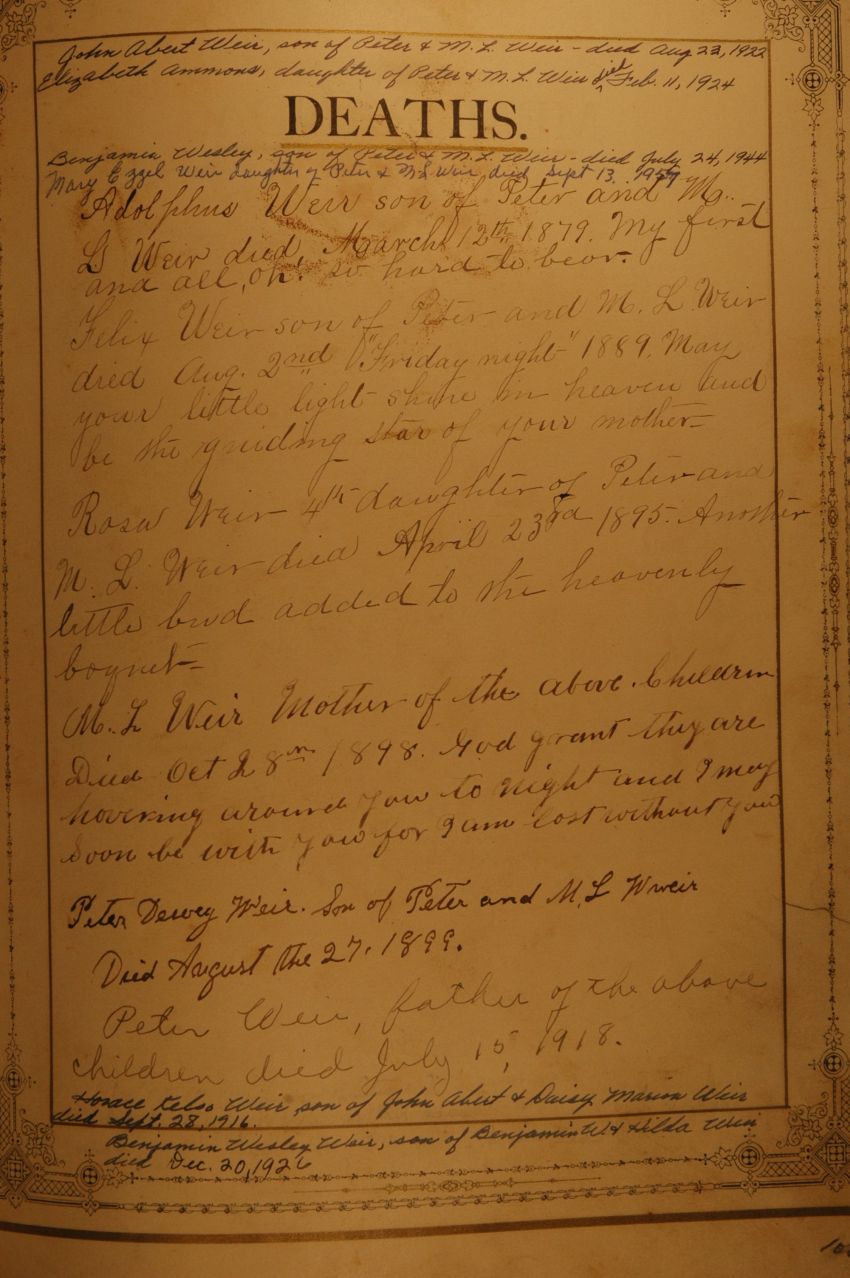 John Abert Weir, son of Peter & M. L. Weir - died Aug 23, 1922
Elizabeth Ammons, daughter of Peter & M. L. Weir died Feb. 11, 1924
DEATHS.
Benjamin Wesley, son of Peter & M. L. Weir - died July 24, 1944
Mary Ezzel Weir daughter of Peter & M L Weir died Sept 13, 1959
Adolphus Weir son of Peter and M.
L Weir died, March 12th 1879. My first
and all, oh! so hard to bear.
Felix Weir son of Peter and M. L. Weir
died Aug. 2nd "Friday night" 1889. May
your little light shine in heaven and
be the guiding star of your mother
Rosa Weir 4th daughter of Peter and
M. L. Weir died April 23rd 1895. Another
little bud added to the heavenly
boquet
M. L Weir Mother of the above. Children
Died Oct 28th 1898. God grant they are
hovering around you to night and I may
soon be with you for I am lost without you
Peter Dewey Weir. Son of Peter and M. L Wweir
Died August the 27. 1899.
Peter Weir, father of the above
children died July 15, 1918.
Horace Kelso Weir son of John Abert & Daisy Marion Weir
died Sept. 28, 1916.
Benjamin Wesley Weir, son of Benjamin W & Hilda Weir
died Dec. 20, 1926